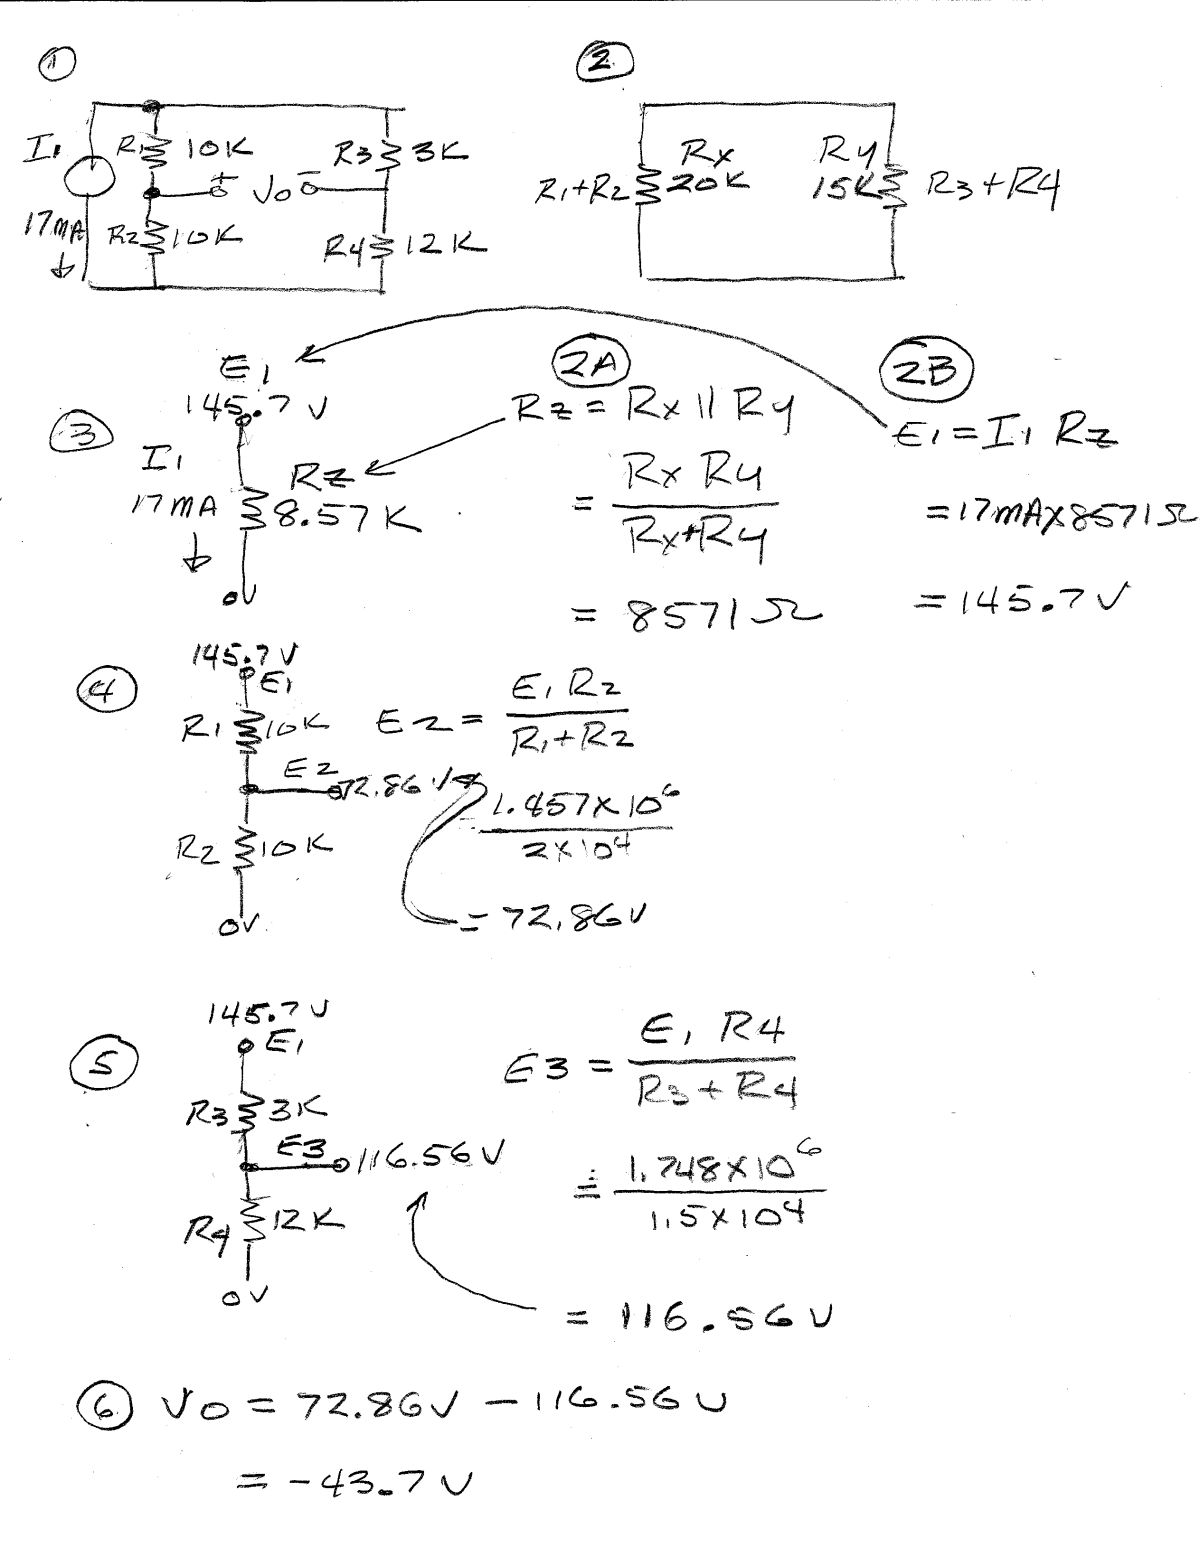 1
I1
17MA
R1 10K
R2 10K
+ Vo -
R3 3K
R4 12K
2
R1+R2
Rx
20K
Ry
15K
R3+R4
3
E1
145.7 V
I1
17MA
Rz
8.57K
0V
2A
Rz = Rx || Ry
= Rx Ry
Rx+Ry
= 8571Ω
2B
E1 = I1 Rz
= 17MA x 8571Ω
= 145.7 V
4
145.7 V
E1
R1 10K
E2
72.86 V
R2 10K
0V
E2 = E1 R2
R1+R2
= 1.457 x 10^6
2 x 10^4
= 72.86 V
5
145.7 V
E1
R3 3K
E3
116.56 V
R4 12K
0V
E3 = E1 R4
R3 + R4
= 1.748 x 10^6
1.5 x 10^4
= 116.56 V
6
Vo = 72.86V - 116.56 V
= -43.7 V